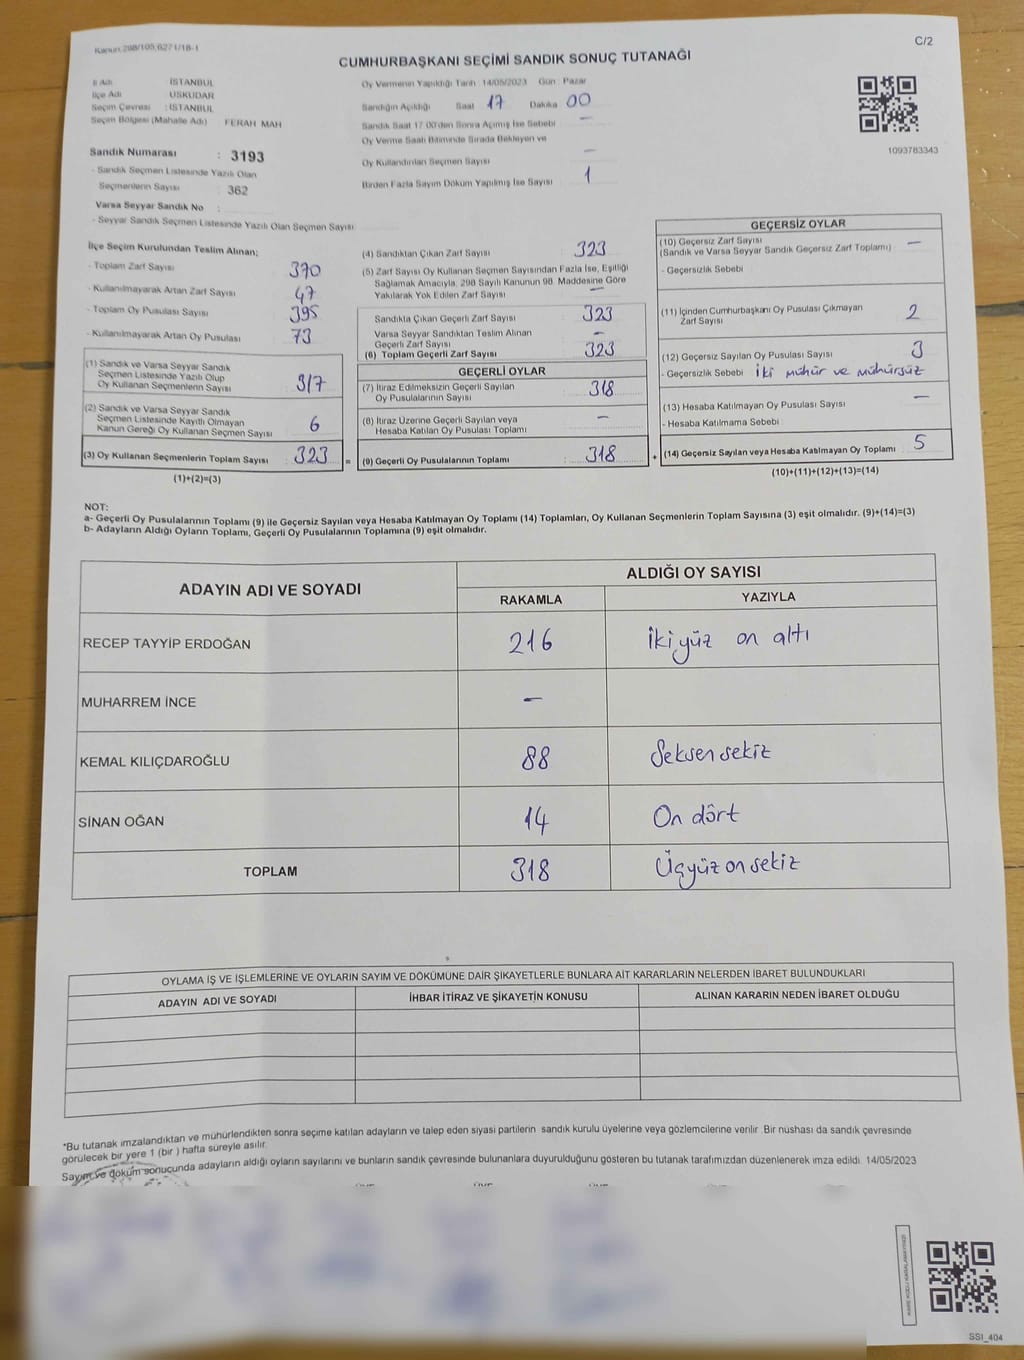 Kanun 298/105,6271/18-1
C/2
CUMHURBAŞKANI SEÇİMİ SANDIK SONUÇ TUTANAĞI
İl Adı : İSTANBUL
İlçe Adı : ÜSKÜDAR
Seçim Çevresi : İSTANBUL
Seçim Bölgesi (Mahalle Adı) FERAH MAH
Sandık Numarası : 3193
- Sandık Seçmen Listesinde Yazılı Olan
Seçmenlerin Sayısı : 362
Varsa Seyyar Sandık No :
- Seyyar Sandık Seçmen Listesinde Yazılı Olan Seçmen Sayısı
Oy Vermenin Yapıldığı Tarih 14/05/2023 Gün : Pazar
Sandığın Açıldığı Saat 17 Dakika 00
Sandık Saat 17 00'den Sonra Açılmış İse Sebebi —
Oy Verme Saati Bitiminde Sırada Bekleyen ve
Oy Kullandırılan Seçmen Sayısı —
Birden Fazla Sayım Döküm Yapılmış İse Sayısı 1
1093783343
İlçe Seçim Kurulundan Teslim Alınan;
- Toplam Zarf Sayısı 370
- Kullanılmayarak Artan Zarf Sayısı 47
- Toplam Oy Pusulası Sayısı 395
- Kullanılmayarak Artan Oy Pusulası 73
(1) Sandık ve Varsa Seyyar Sandık
Seçmen Listesinde Yazılı Olup
Oy Kullanan Seçmenlerin Sayısı 317
(2) Sandık ve Varsa Seyyar Sandık
Seçmen Listesinde Kayıtlı Olmayan
Kanun Gereği Oy Kullanan Seçmen Sayısı 6
(3) Oy Kullanan Seçmenlerin Toplam Sayısı 323 =
(1)+(2)=(3)
(4) Sandıktan Çıkan Zarf Sayısı 323
(5) Zarf Sayısı Oy Kullanan Seçmen Sayısından Fazla İse, Eşitliği
Sağlamak Amacıyla, 298 Sayılı Kanunun 98. Maddesine Göre
Yakılarak Yok Edilen Zarf Sayısı —
Sandıkta Çıkan Geçerli Zarf Sayısı 323
Varsa Seyyar Sandıktan Teslim Alınan
Geçerli Zarf Sayısı —
(6) Toplam Geçerli Zarf Sayısı 323
GEÇERLİ OYLAR
(7) İtiraz Edilmeksizin Geçerli Sayılan
Oy Pusulalarının Sayısı 318
(8) İtiraz Üzerine Geçerli Sayılan veya
Hesaba Katılan Oy Pusulası Toplamı —
(9) Geçerli Oy Pusulalarının Toplamı 318 +
GEÇERSİZ OYLAR
(10) Geçersiz Zarf Sayısı —
(Sandık ve Varsa Seyyar Sandık Geçersiz Zarf Toplamı)
- Geçersizlik Sebebi
(11) İçinden Cumhurbaşkanı Oy Pusulası Çıkmayan
Zarf Sayısı 2
(12) Geçersiz Sayılan Oy Pusulası Sayısı 3
- Geçersizlik Sebebi iki mühür ve mühürsüz
(13) Hesaba Katılmayan Oy Pusulası Sayısı —
- Hesaba Katılmama Sebebi
(14) Geçersiz Sayılan veya Hesaba Katılmayan Oy Toplamı 5
(10)+(11)+(12)+(13)=(14)
NOT:
a- Geçerli Oy Pusulalarının Toplamı (9) ile Geçersiz Sayılan veya Hesaba Katılmayan Oy Toplamı (14) Toplamları, Oy Kullanan Seçmenlerin Toplam Sayısına (3) eşit olmalıdır. (9)+(14)=(3)
b- Adayların Aldığı Oyların Toplamı, Geçerli Oy Pusulalarının Toplamına (9) eşit olmalıdır.
ADAYIN ADI VE SOYADI ALDIĞI OY SAYISI
RAKAMLA YAZIYLA
RECEP TAYYİP ERDOĞAN 216 İkiyüz on altı
MUHARREM İNCE —
KEMAL KILIÇDAROĞLU 88 Seksen sekiz
SİNAN OĞAN 14 On dört
TOPLAM 318 Üçyüz on sekiz
OYLAMA İŞ VE İŞLEMLERİNE VE OYLARIN SAYIM VE DÖKÜMÜNE DAİR ŞİKAYETLERLE BUNLARA AİT KARARLARIN NELERDEN İBARET BULUNDUKLARI
ADAYIN ADI VE SOYADI İHBAR İTİRAZ VE ŞİKAYETİN KONUSU ALINAN KARARIN NEDEN İBARET OLDUĞU
*Bu tutanak imzalandıktan ve mühürlendikten sonra seçime katılan adayların ve talep eden siyasi partilerin sandık kurulu üyelerine veya gözlemcilerine verilir .Bir nüshası da sandık çevresinde
görülecek bir yere 1 (bir ) hafta süreyle asılır.
Sayım ve döküm sonucunda adayların aldığı oyların sayılarını ve bunların sandık çevresinde bulunanlara duyurulduğunu gösteren bu tutanak tarafımızdan düzenlenerek imza edildi. 14/05/2023
SSI_404